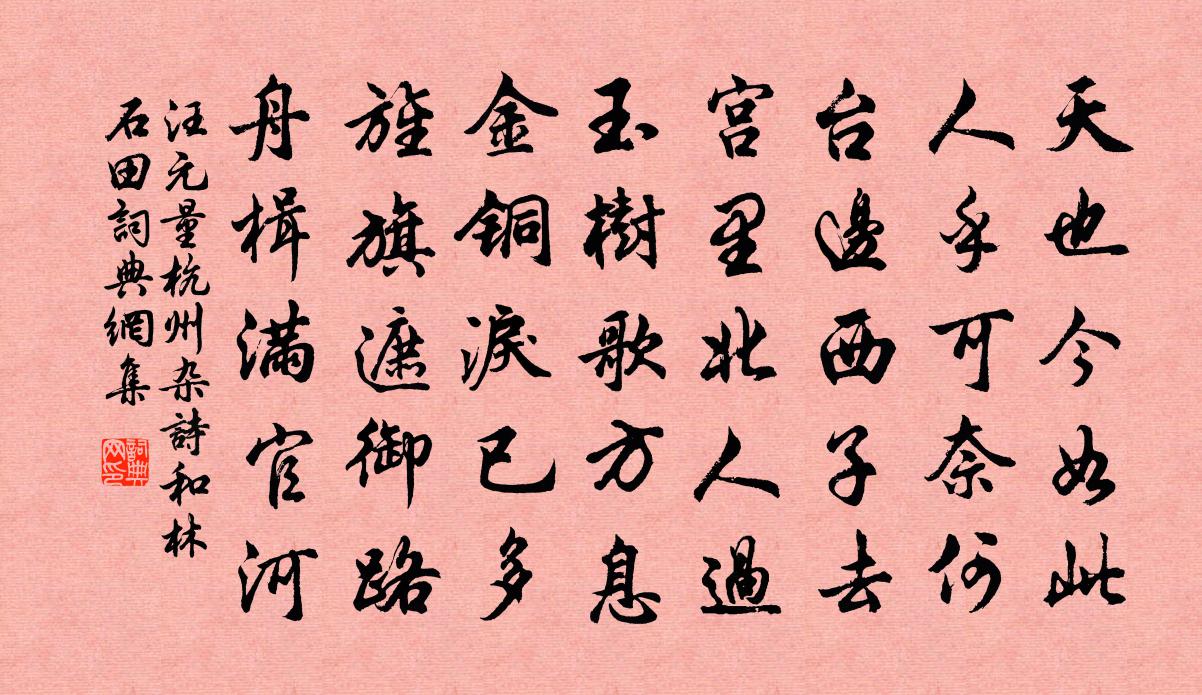 天也今如此
人乎可奈何
台邊西子去
宫里北人過
玉樹歌方息
金銅淚已多
旌旗遮御路
舟楫滿官河
汪元量杭州杂詩和林
石田詞典網集
詞典
网印